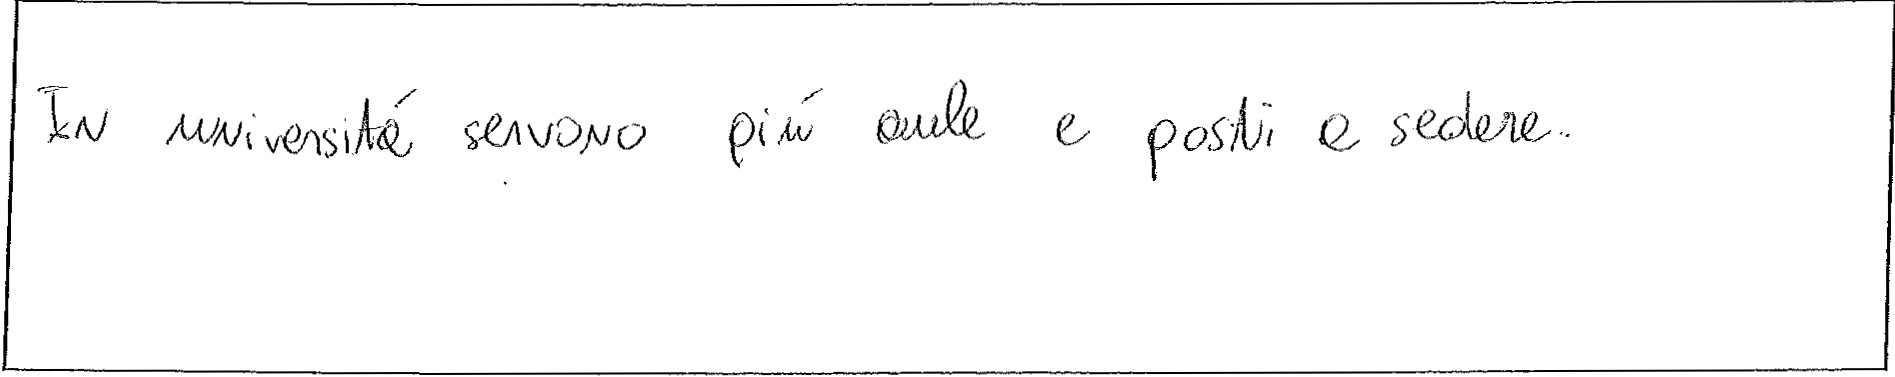 In universitá servono piú aule e posti a sedere.